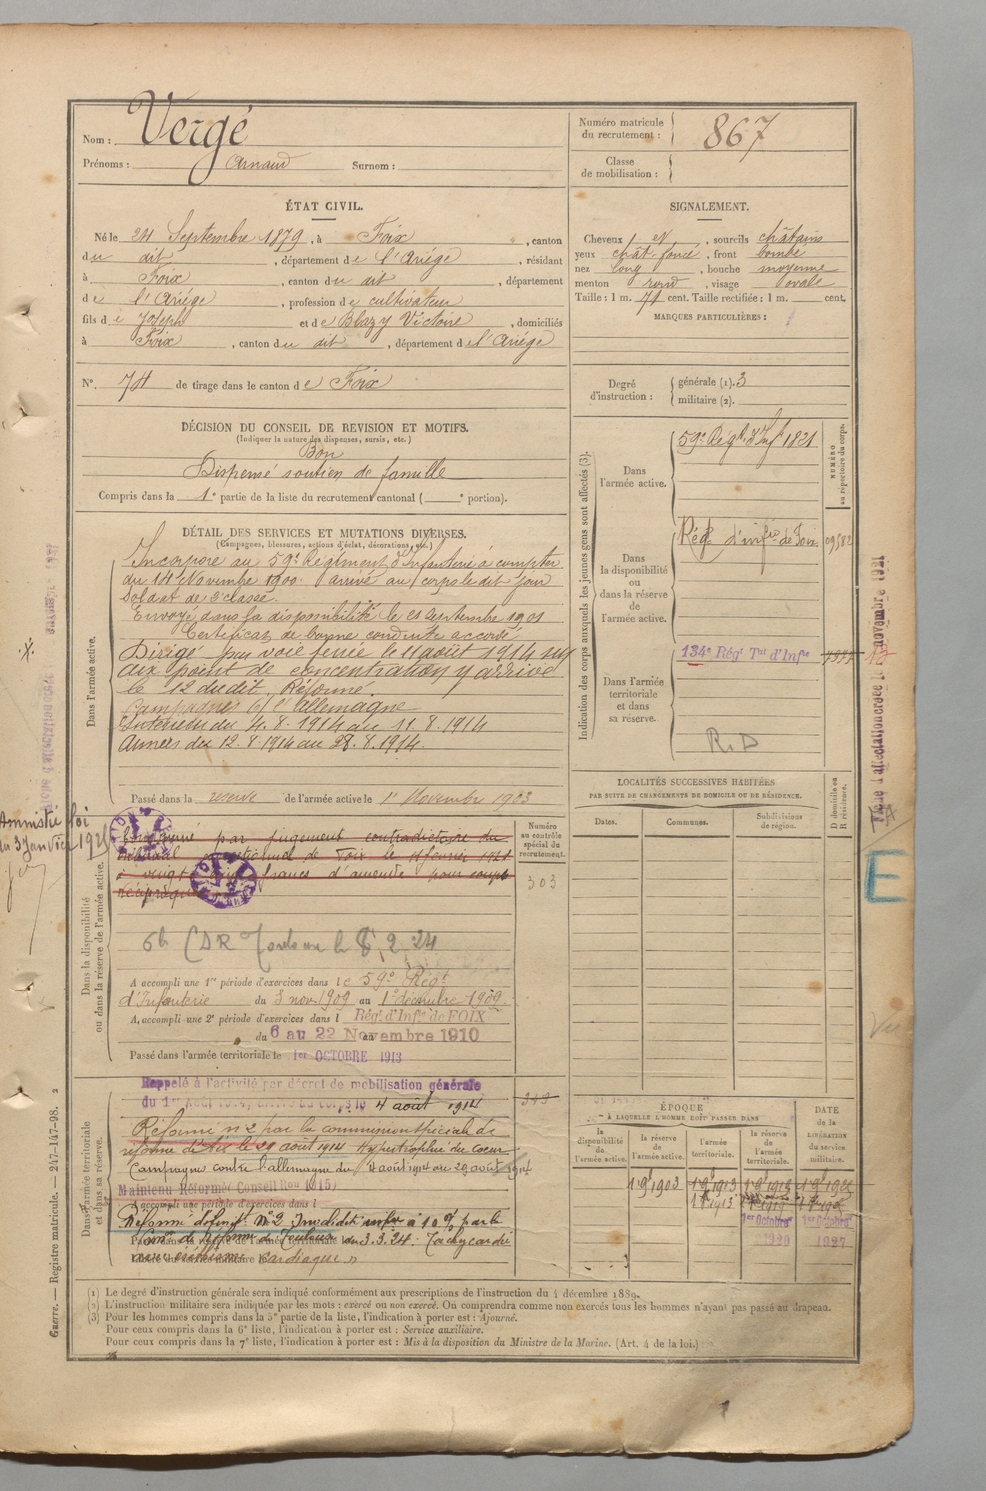 Nom : Vergé
Prénoms : Arnaud Surnom :
Numéro matricule du recrutement : 867
Classe de mobilisation :
ÉTAT CIVIL.
Né le 24 Septembre 1879, à Foix, canton
du dit, département de l'Ariége, résidant
à Foix, canton du dit, département
de l'Ariége, profession de cultivateur
fils de Joseph et de Blazy Victoire, domiciliés
à Foix, canton du dit, département de l'Ariége
N°. 74 de tirage dans le canton de Foix
SIGNALEMENT.
Cheveux et, sourcils châtains
yeux chât. foncé, front bombé
nez long, bouche moyenne
menton rond, visage ovale
Taille : 1 m. 71 cent. Taille rectifiée : 1 m. cent.
MARQUES PARTICULIÈRES :
Degré d'instruction : générale (1). 3
militaire (2).
DÉCISION DU CONSEIL DE REVISION ET MOTIFS.
(Indiquer la nature des dispenses, sursis, etc.)
Bon
Dispensé soutien de famille
Compris dans la 1e partie de la liste du recrutement cantonal ( e portion).
DÉTAIL DES SERVICES ET MUTATIONS DIVERSES.
(Campagnes, blessures, actions d'éclat, décorations, etc.)
Dans l'armée active.
Incorporé au 59e Régiment d'Infanterie à compter
du 14 Novembre 1900. arrivé au corps le dit jour
soldat de 2e classe.
Envoyé dans la disponibilité le 21 Septembre 1901
Certificat de bonne conduite accordé
Dirigé par voie ferrée le 11 août 1914 sur
aux point de concentration y arrive
le 12 dudit, Réformé.
Campagnes c/ l'allemagne
Intérieur du 4.8.1914 au 11.8.1914
Armées du 12.8.1914 au 28.8.1914.
Passé dans la réserve de l'armée active le 1er Novembre 1903
Indication des corps auxquels les jeunes gens sont affectés (3).
Dans l'armée active.
59e Régt d'Inf 1821
NUMÉRO au répertoire du corps.
Dans la disponibilité ou dans la réserve de l'armée active.
Régt d'infie de Foix
Dans l'armée territoriale et dans sa réserve.
134e Régt Tal d'Infie
R.D
LOCALITÉS SUCCESSIVES HABITÉES
PAR SUITE DE CHANGEMENTS DE DOMICILE OU DE RÉSIDENCE.
Dates. Communes. Subdivisions de région. D domicile ou R résidence.
E
Amnistie loi
du 3 Janvier 1925
Dans la disponibilité ou dans la réserve de l'armée active.
Condamné par jugement contradictoire du
tribunal correctionnel de Foix le 11 février 1921
à vingt cinq francs d'amende pour coups
réciproques
Numéro au contrôle spécial du recrutement.
303
le 8. 2. 24
A accompli une 1re période d'exercices dans le 59e Régt
d'Infanterie du 3 nov. 1909 au 1er décembre 1909.
A accompli une 2e période d'exercices dans l Régt d'Infie de FOIX
du 6 au 22 Novembre 1910
Passé dans l'armée territoriale le 1er OCTOBRE 1913
Dans l'armée territoriale et dans sa réserve.
Rappelé à l'activité par décret de mobilisation générale
du 1er Août 1914, arrivé au corps le 4 août 1914
343
Réformé n° 2 par la commission spéciale de
réforme d'Aix le 29 août 1914 Hypertrophie du cœur
Campagne contre l'allemagne du 4 août 1914 au 29 août 1914
Maintenu Réformé
A accompli une période d'exercices dans l
Réforme définit. N° 2 Invalidité infr à 10 % par la
Comon de Réforme de Toulouse du 3.3.24. Tachycardie
avec éréthisme cardiaque
Passé dans la réserve de l'armée territoriale le
Libéré du service militaire le
ÉPOQUE
À LAQUELLE L'HOMME DOIT PASSER DANS
la disponibilité de l'armée active. la réserve de l'armée active. l'armée territoriale. la réserve de l'armée territoriale.
DATE de la LIBÉRATION du service militaire.
1er 9 1903
1er Octobre 1920
1er Octobre 1927
(1) Le degré d'instruction générale sera indiqué conformément aux prescriptions de l'instruction du 4 décembre 1889.
(2) L'instruction militaire sera indiquée par les mots : exercé ou non exercé. On comprendra comme non exercés tous les hommes n'ayant pas passé au drapeau.
(3) Pour les hommes compris dans la 5e partie de la liste, l'indication à porter est : Ajourné.
Pour ceux compris dans la 6e liste, l'indication à porter est : Service auxiliaire.
Pour ceux compris dans la 7e liste, l'indication à porter est : Mis à la disposition du Ministre de la Marine. (Art. 4 de la loi.)
Guerre. — Registre matricule. — 247-147-98. 2